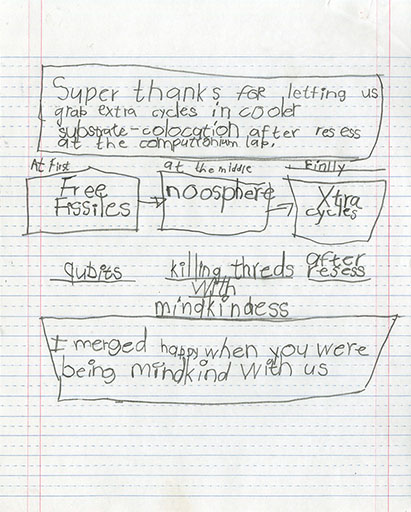 Super thanks for letting us
grab extra cycles in cooler
substrate-colocation after resess
at the computronium lab.
At First
at the middle
Finlly
Free
Fissiles
noosphere
Xtra
cycles
qubits
killing threds
with
mindkindness
after
resess
I merged happy when you were
being mindkind with us